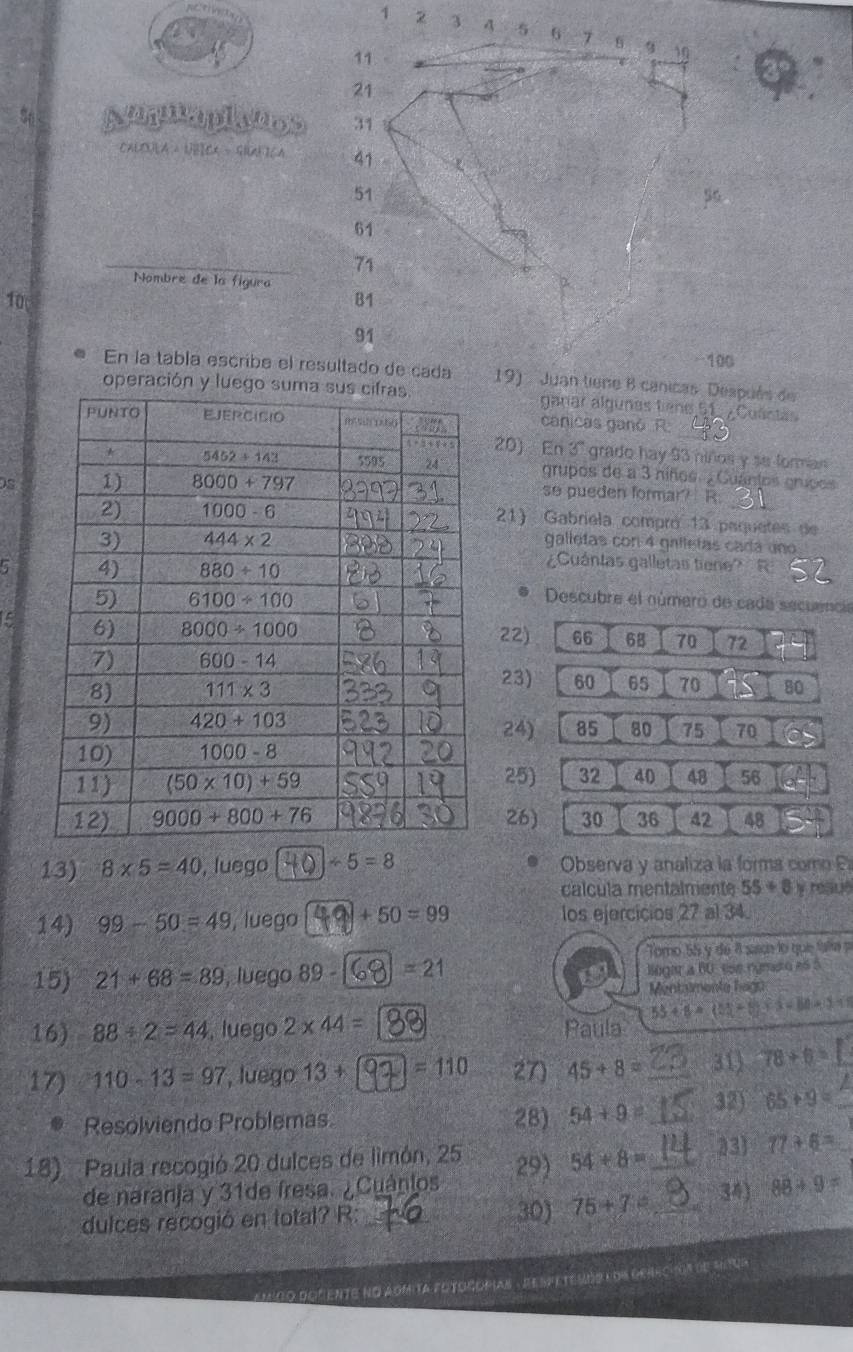 1 2 3 4 5 6 7 8 9 10
11
21
31
41
51
61
71
81
91
50
100
CALCULA + UBICA + GRAFICA
Nombre de la figura
En la tabla escribe el resultado de cada
operación y luego suma sus cifras.
PUNTO EJERCICIO RESULTADO
* 5452 + 143 5595 24
1) 8000 + 797 8797 31
2) 1000 - 6 994 22
3) 444 x 2 888 24
4) 880 ÷ 10 88 16
5) 6100 ÷ 100 61 7
6) 8000 ÷ 1000 8 8
7) 600 - 14 586 19
8) 111 x 3 333 9
9) 420 + 103 523 10
10) 1000 - 8 992 20
11) (50 x 10) + 59 559 19
12) 9000 + 800 + 76 9876 30
13) 8 x 5 = 40, luego 40 ÷ 5 = 8
14) 99 - 50 = 49, luego 49 + 50 = 99
15) 21 + 68 = 89, luego 89 - 68 = 21
16) 88 ÷ 2 = 44, luego 2 x 44 = 88
17) 110 - 13 = 97, luego 13 + 97 = 110
Resolviendo Problemas.
18) Paula recogió 20 dulces de limón, 25
de naranja y 31de fresa. ¿Cuántos
dulces recogió en total? R: 76
19) Juan tiene 8 canicas. Después de
ganar algunas tiene 51 ¿Cuántas
canicas ganó. R: 43
20) En 3° grado hay 93 niños y se forman
grupos de a 3 niños. ¿Cuántos grupos
se pueden formar? R: 31
21) Gabriela compró 13 paquetes de
galletas con 4 galletas cada uno
¿Cuántas galletas tiene? R: 52
Descubre el número de cada secuencia
22) 66 68 70 72 74
23) 60 65 70 75 80
24) 85 80 75 70 65
25) 32 40 48 56 64
26) 30 36 42 48 54
Observa y analiza la forma como
calcula mentalmente 55 + 8 y
los ejercicios 27 al 34.
Tomo 55 y de 8 saco lo que falta
llegar a 60, ese número es 5
Mentalmente hago
Paula
27) 45 + 8 = 31) 78 + 6 =
28) 54 + 9 = 15 32) 65 + 9 =
29) 54 + 8 = 14 33) 77 + 6 =
30) 75 + 7 = 8 34) 88 + 9 =
AMIGO DOCENTE NO ADMITA FOTOCOPIAS